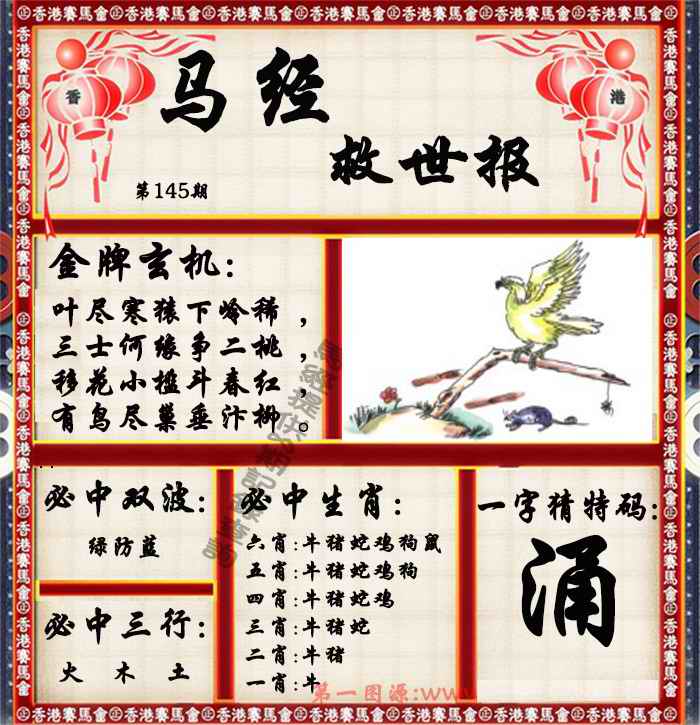 香港賽馬會
香 港
马经
救世报
第145期
金牌玄机:
叶尽寒猿下岭稀，
三士何缘争二桃，
移花小槛斗春红，
有鸟尽巢垂汴柳。
必中双波:
绿防蓝
必中三行:
火 木 土
必中生肖:
六肖:牛猪蛇鸡狗鼠
五肖:牛猪蛇鸡狗
四肖:牛猪蛇鸡
三肖:牛猪蛇
二肖:牛猪
一肖:牛
一字猜特码:
涌
第一图源:www